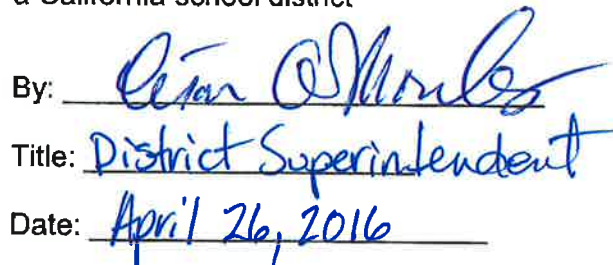 a California school district
By:
Title: District Superintendent
Date: April 26, 2016